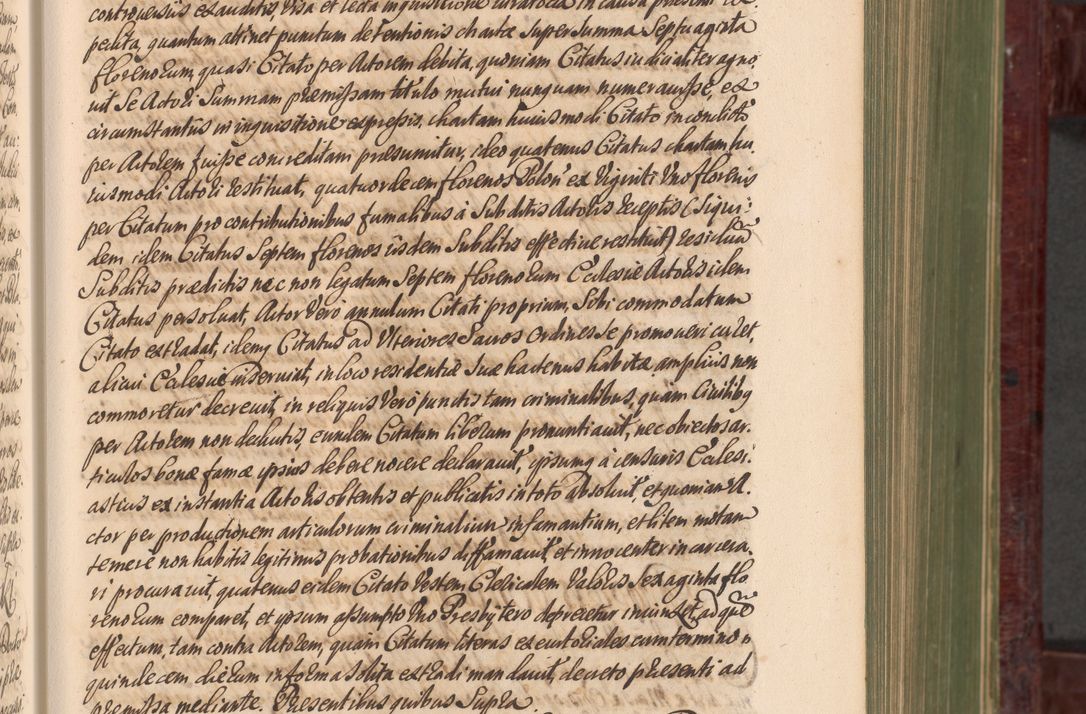 controversiis exauditis, visa et lecta inquisitione curatocia in causa praesenti ex
pedita, quantum attinet punctum detentionis chartae super summa Septuaginta
florenorum, quasi Citato per Actorem debita, quoniam Citatus iudicialiter agno
vit Se Actori Summam praemissam titulo mutui nunquam numeravisse, ex
circumstantiis in inquisitione expressis, chartam huiusmodi Citato in conflictu
per Actorem fuisse concreditam praesumitur, ideo quatenus Citatus chartam hu
iusmodi Actori restituat, quatuordecem florenos Polon ex Viginti Uno florenis
per Citatum pro contributionibus fumalibus à Subditis Actoris receptis (Siqui:
dem idem Citatus Septem florenos iisdem Subditis effective restituit) residuum
Subditis praedictis nec non legatum Septem florenorum Ecclesiae Actoris idem
Citatus persolvat, Actor vero annulum Citati proprium, Sibi commodatum
Citato extradat, idemq Citatus ad Ulteriores Sacros Ordines Se promoveri curet,
alicui Ecclesiae inserviat, in loco residentiae Suae hactenus habitae amplius non
commoretur decrevit, in reliquis Vero punctis tam criminalibus, quam Civilibq
per Actorem non deductis, eundem Citatum liberum pronuntiavit, nec obiectos ar
ticulos bonae famae ipsius debere nocere declaravit, ipsumq à censuris Ecclesi:
asticis ex instantia Actoris obtentis et publicatis in toto absolvit, et quoniam A
ctor per productionem articulorum criminalium infamantium, et litem motam
temerè non habitis legitimis probationibus diffamavit, et innocenter incarcera
ri procuravit, quatenus eidem Citato Vestem Clericalem Valoris Sexaginta flo
renorum comparet, et ipsum assumpto Uno Presbytero deprecetur iniunxit, ad que
effectum, tam contra Actorem, quam Citatum literas executoriales cum termino
quindecem dierum in forma Solita extradi mandavit, decreto praesenti ad
praemissa mediante. Praesentibus quibus Supra.